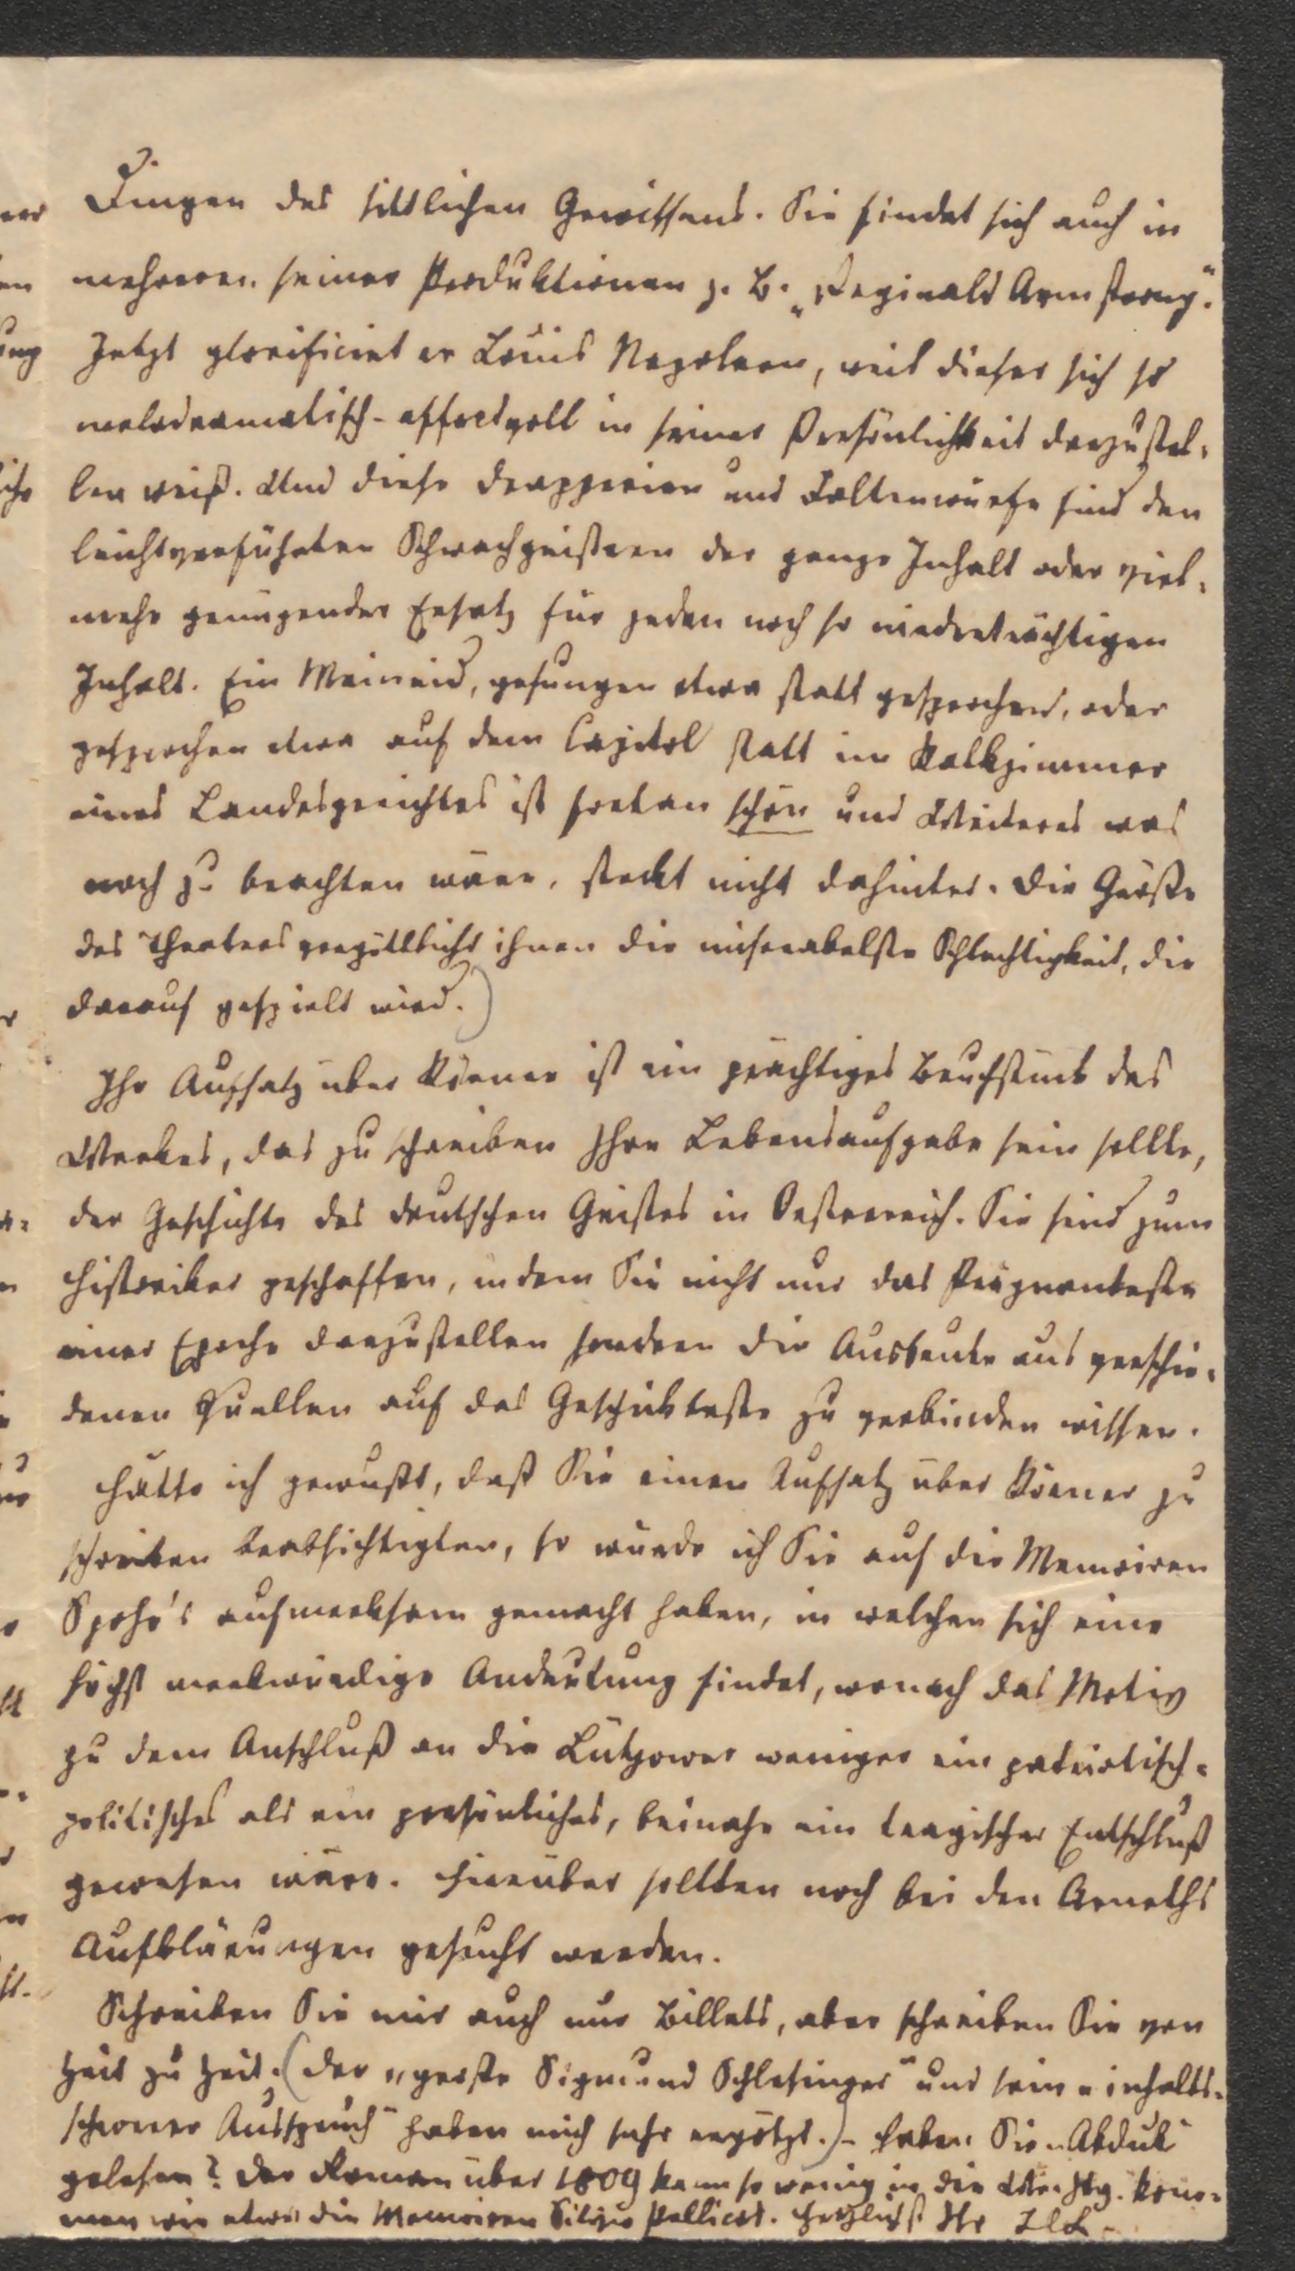 Dingen des sittlichen Gewissens. Sie findet sich auch in
mehreren seiner Produktionen z. B. „Reginald Armstrong“.
Jetzt glorificiert er Louis Napoleon, weil dieser sich so
melodramatisch-effectvoll in seiner Persönlichkeit darzustel-
len weiß. Und diese Drapperien und Faltenwürfe sind den
leichtverführten Schwachgeistern der ganze Inhalt oder viel-
mehr genügender Ersatz für jeden noch so niederträchtigen
Inhalt. Ein Meineid, gesungen etwa statt gesprochen, oder
gesprochen etwa auf dem Capitol statt im Kalkzimmer
eines Landesgerichtes ist fortan schön und Weiteres was
noch zu beachten wäre, steckt nicht dahinter. Die Größe
des Theaters vergöttlicht ihnen die miserabelste Schlechtigkeit, die
darauf gespielt wird.)
Ihr Aufsatz über Körner ist ein prächtiges Bruchstück des
Werkes, das zu schreiben Ihre Lebensaufgabe sein sollte,
der Geschichte des deutschen Geistes in Oesterreich. Sie sind zum
Historiker geschaffen, indem Sie nicht nur das Prägnanteste
einer Epoche darzustellen sondern die Ausbeute aus verschie-
denen Quellen auf das Geschickteste zu verbinden wissen.
Hätte ich gewußt, daß Sie einen Aufsatz über Körner zu
schreiben beabsichtigten, so würde ich Sie auf die Memoiren
Spohr's aufmerksam gemacht haben, in welchen sich eine
höchst merkwürdige Andeutung findet, wonach das Motiv
zu dem Anschluß an die Lützower weniger ein patriotisch-
politisches als ein persönliches, beinahe ein tragischer Entschluß
gewesen wäre. Hierüber sollten noch bei den Arneths
Aufklärungen gesucht werden.
Schreiben Sie mir auch nur Billets, aber schreiben Sie von
Zeit zu Zeit. (Der „große Sigmund Schlesinger“ und sein „inhalts-
schwerer Ausspruch“ haben mich sehr ergötzt.) – Haben Sie „Abdul“
gelesen? Der Roman über 1809 kann so wenig in die Wr. Ztg. kom-
men wie etwa die Memoiren Silvio Pellicos. Herzlichst Ihr